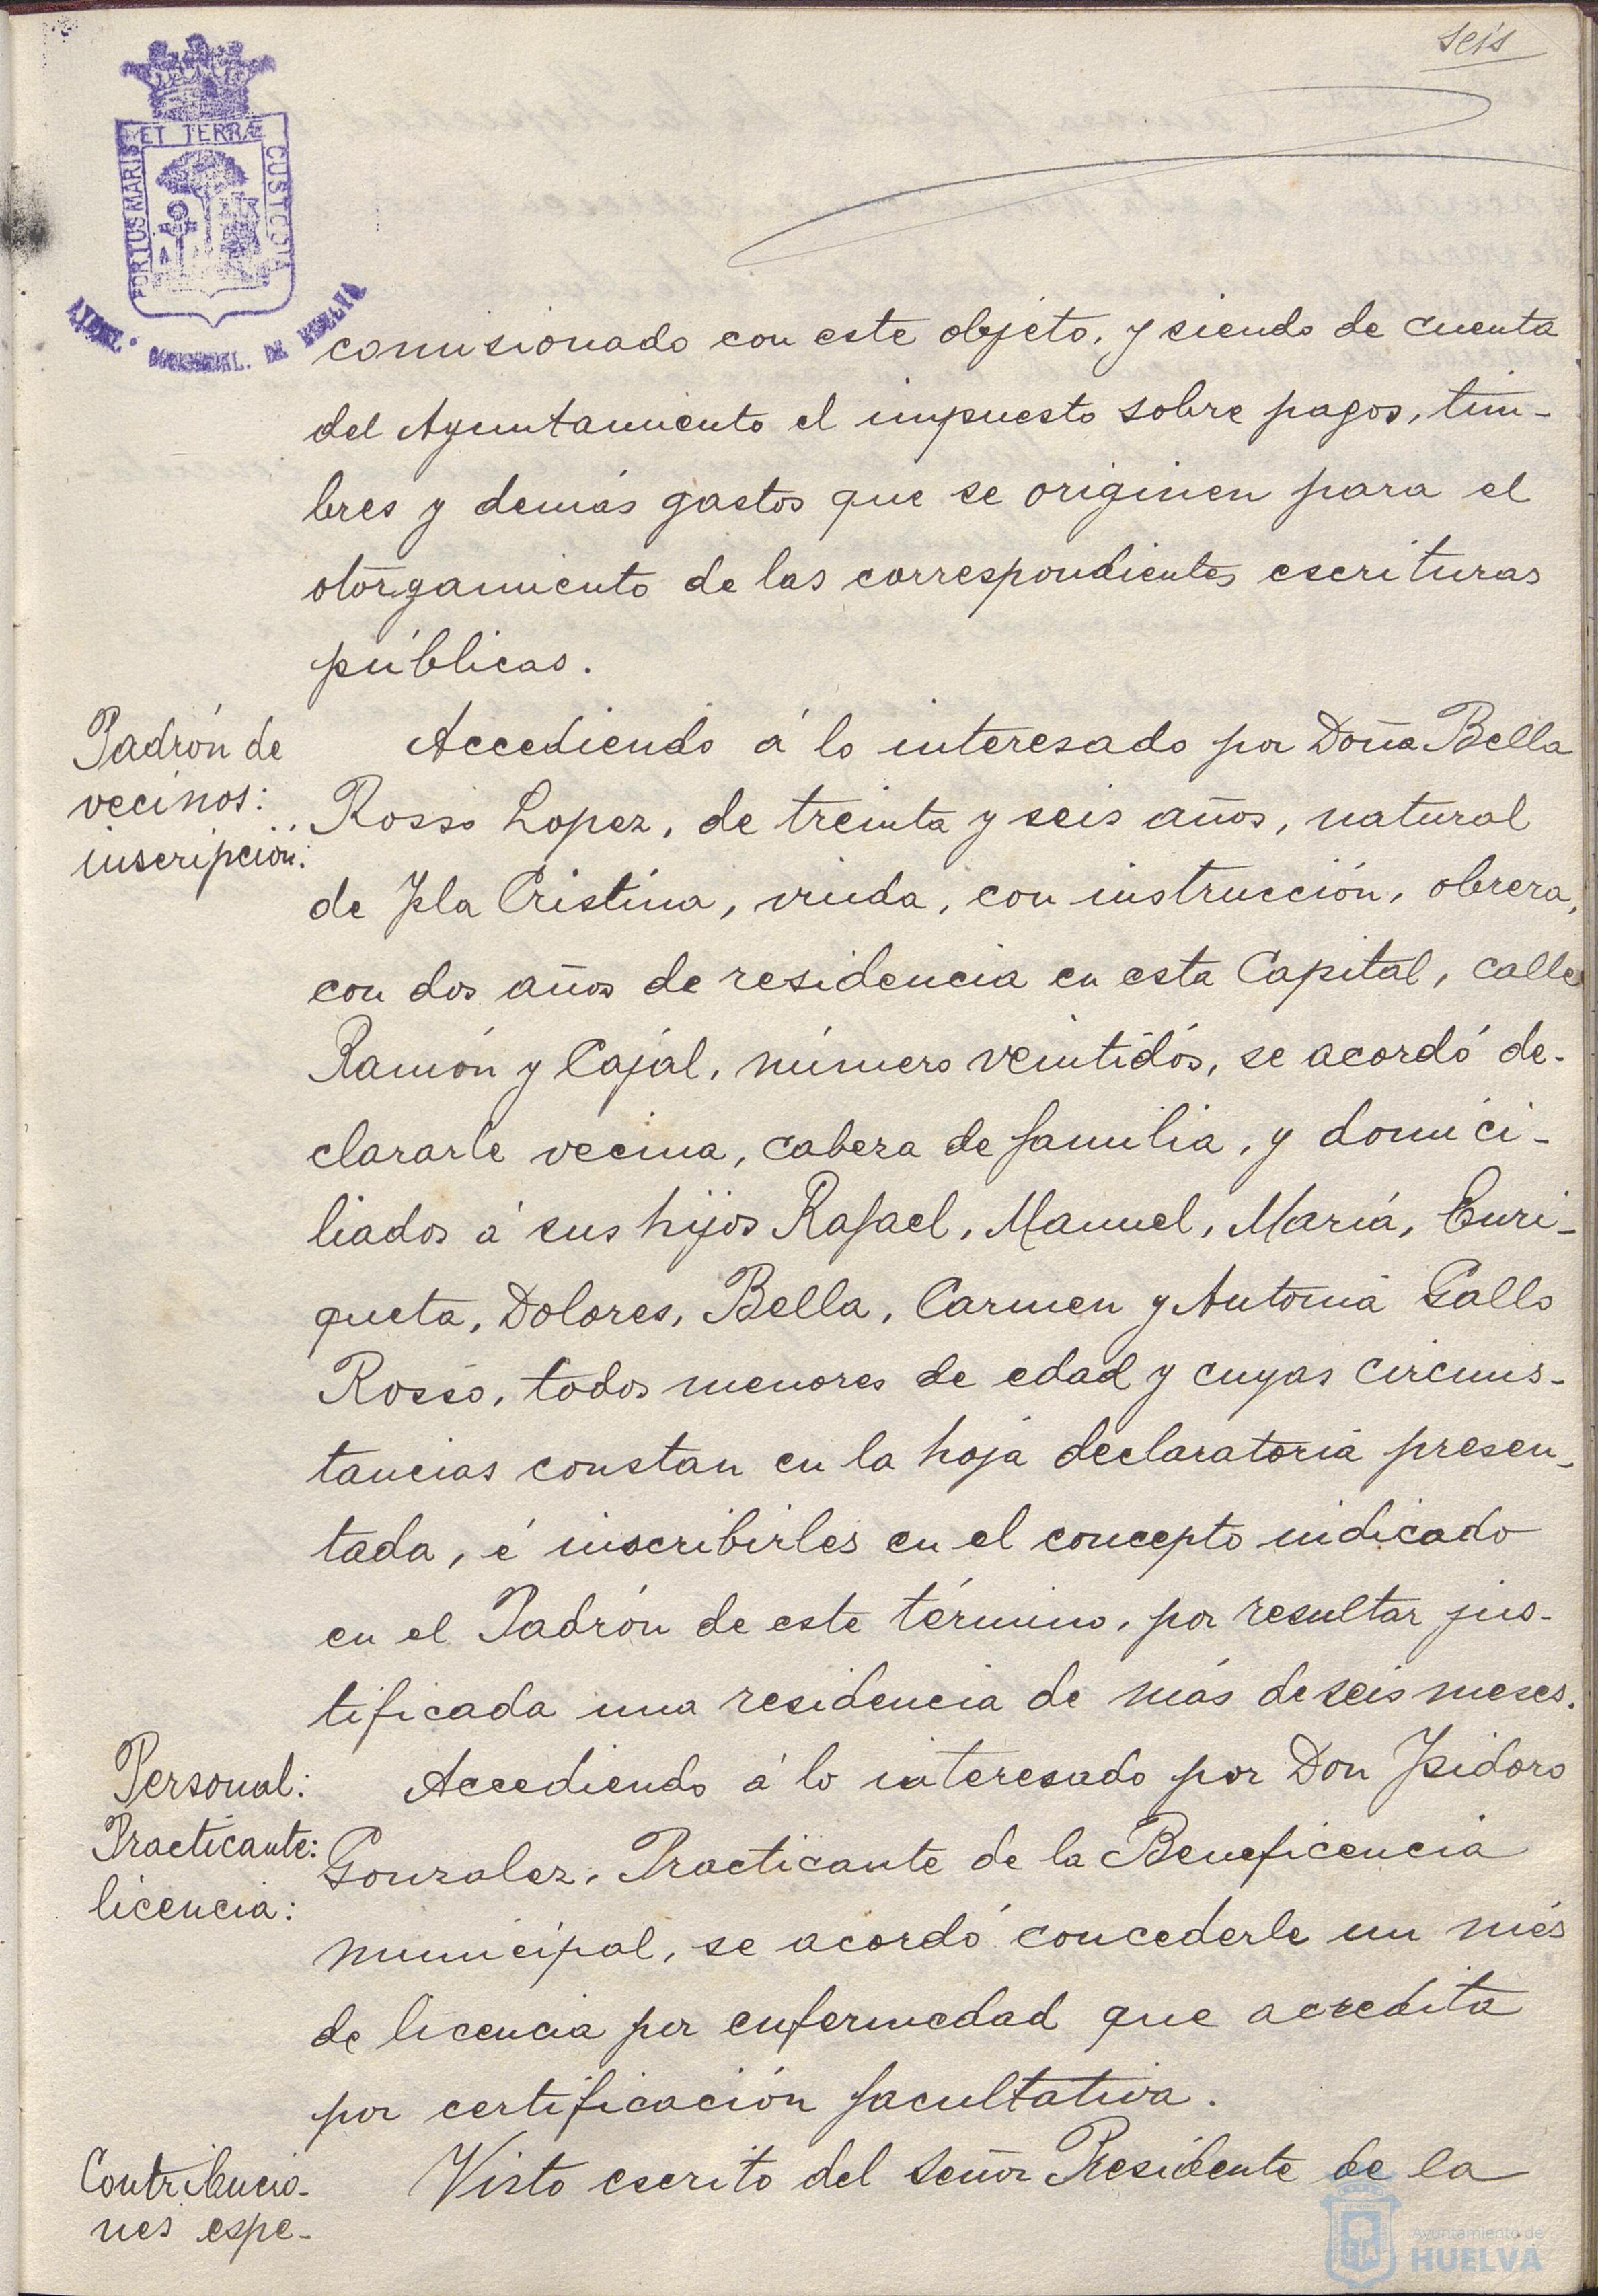 seis
PORTUS MARIS ET TERRÆ CUSTODIA
comisionado con este objeto, y siendo de cuenta
del Ayuntamiento el impuesto sobre pagos, tim-
bres y demás gastos que se originen para el
otorgamiento de las correspondientes escrituras
públicas.
Padrón de
vecinos:
inscripción:
Accediendo á lo interesado por Doña Bella
Rosso Lopez, de treinta y seis años, natural
de Isla Cristina, viuda, con instrucción, obrera,
con dos años de residencia en esta Capital, calle
Ramón y Cajal, número veintidós, se acordó de-
clararle vecina, cabeza de familia, y domici-
liados á sus hijos Rafael, Manuel, María, Enri-
queta, Dolores, Bella, Carmen y Antonia Gallo
Rosso, todos menores de edad y cuyas circuns-
tancias constan en la hoja declaratoria presen-
tada, é inscribirles en el concepto indicado
en el Padrón de este término, por resultar jus-
tificada una residencia de más de seis meses.
Personal:
Practicante:
licencia:
Accediendo á lo interesado por Don Isidoro
Gonzalez, Practicante de la Beneficencia
municipal, se acordó concederle un més
de licencia por enfermedad que acredita
por certificación facultativa.
Contribucio-
nes espe-
Visto escrito del Señor Presidente de la
Ayuntamiento de
HUELVA